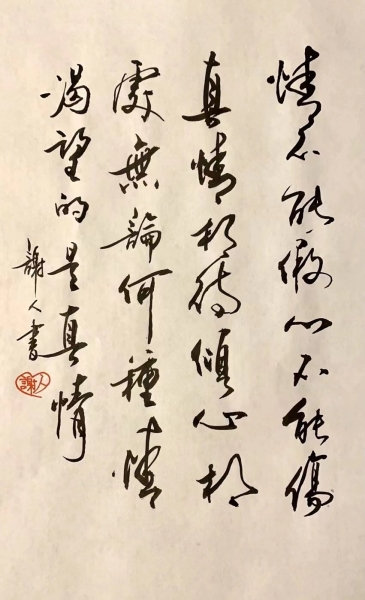 情不能假心不能傷
真情相待傾心相
處無論何種情
渴望的是真情
謝人書
謝人